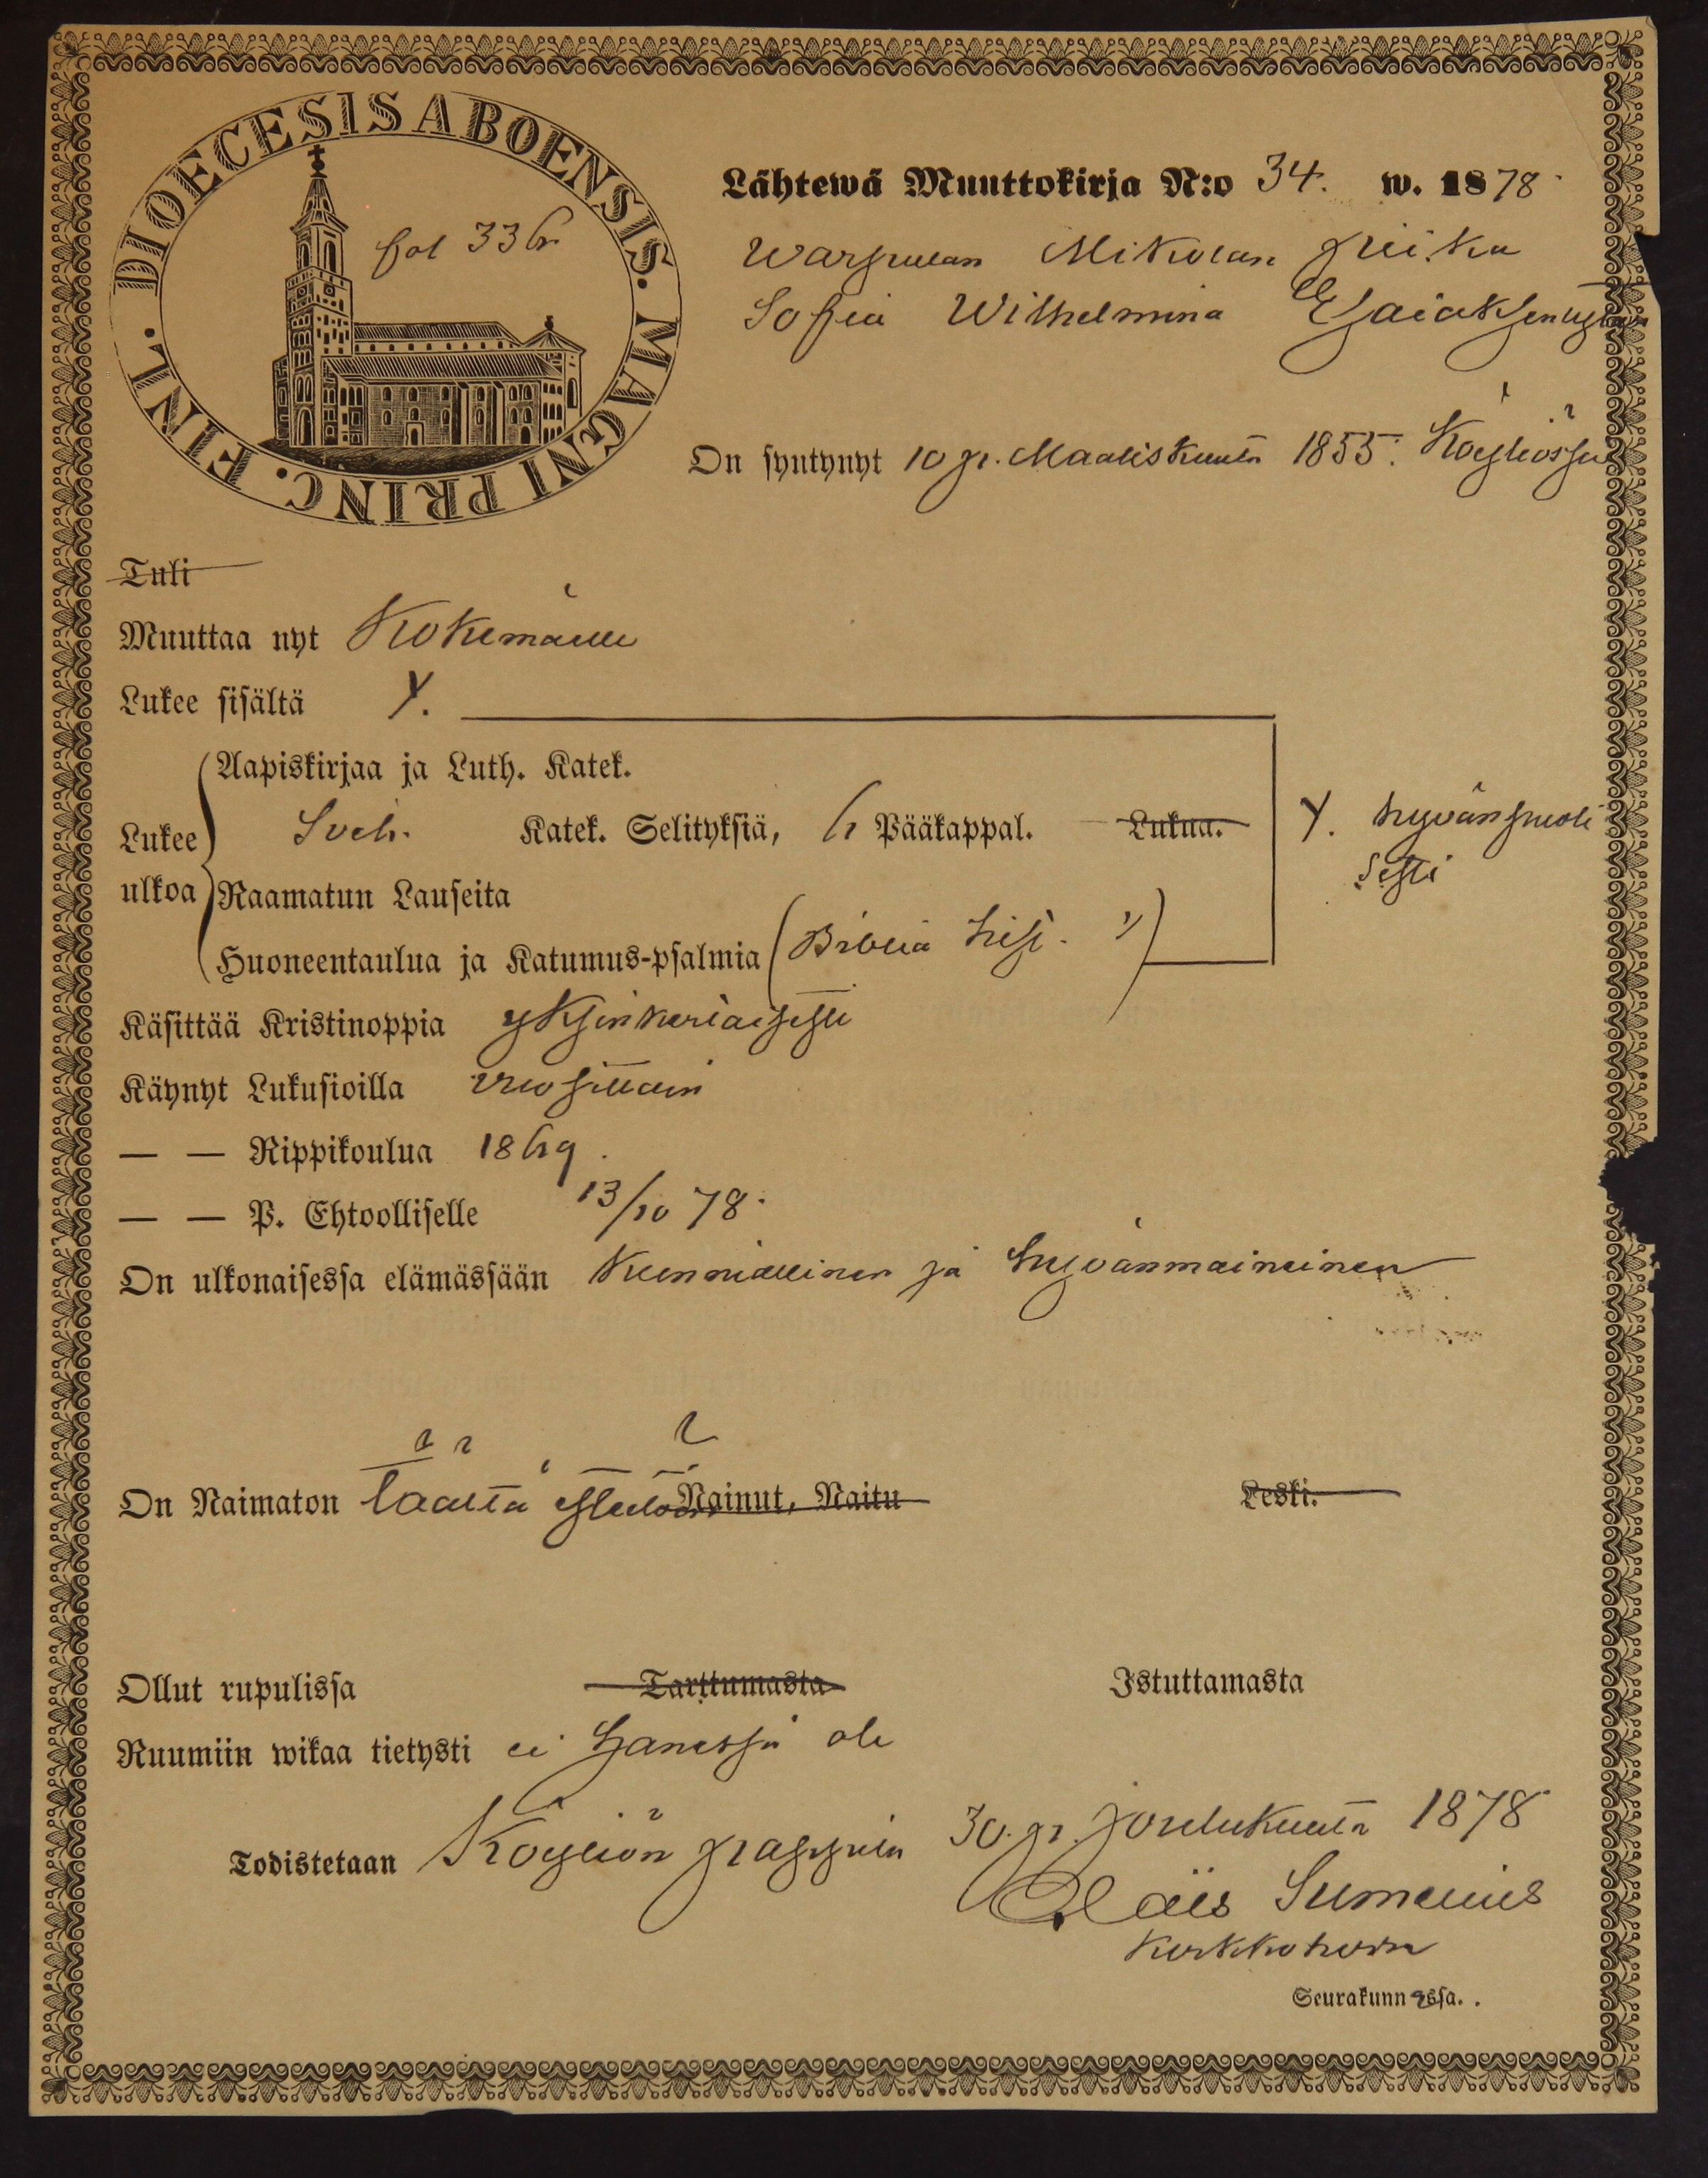 DIOECESIS ABOENSIS. MAGNI PRINC. FINL.
fol 336.
Lähtewä Muuttokirja N:o 34. w. 1878.
Warpulan Mikolan piika
Sofia Wilhelmina Esaiaksentytär
On syntynyt 10 p. Maaliskuuta 1855. Köyliössä
Tuli
Muuttaa nyt Kokemäelle
Lukee sisältä Y.
Aapiskirjaa ja Luth. Katek.
Lukee ulkoa
Sveb. Katek. Selityksiä, 6 Pääkappal. Lukua.
Y. hyvänpuolisesti
Raamatun Lauseita
Huoneentaulua ja Katumus-psalmia (Biblia hist. ")
Käsittää Kristinoppia yksinkertaisesti
Käynyt Lukusioilla vuosittain
— — Rippikoulua 1869.
— — P. Ehtoolliselle 13/10 78.
On ulkonaisessa elämässään Kunniallinen ja hyvänmaineinen
On Naimaton täältä esteetöin Nainut, Naitu Leski.
Ollut rupulissa Tarttumasta Istuttamasta
Ruumiin wikaa tietysti ei hänessä ole
Todistetaan Köyliön pappila 30. p. Joulukuuta 1878
Kirkkoherra
Seurakunnassa.